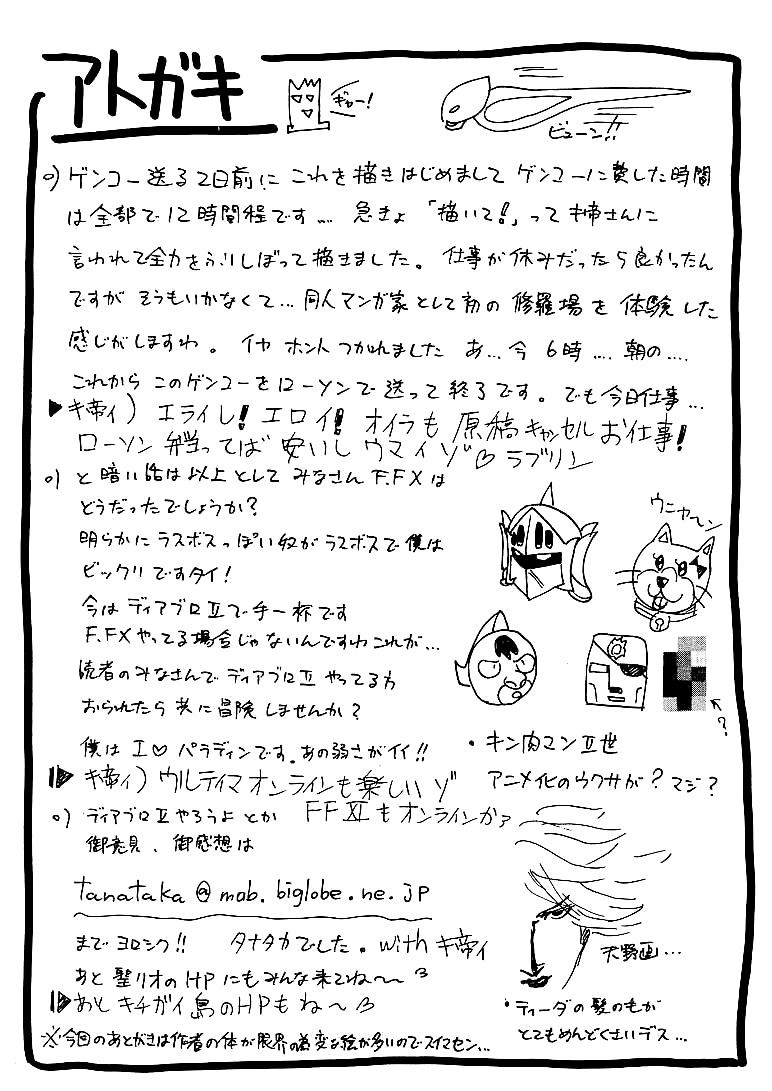 アトガキ
ギャー!
ビューン!!
○) ゲンコー送る2日前にこれを描きはじめましてゲンコーに費した時間
は全部で12時間程です…. 急きょ「描いて!」ってキ帝さんに
言われて全力をふりしぼって描きました。仕事が休みだったら良かったん
ですがそうもいかなくて… 同人マンガ家として初の修羅場を体験した
感じがしますわ。イヤホントつかれました あ… 今6時…. 朝の….
これからこのゲンコーをローソンで送って終了です。でも今日仕事…
▶キ帝ィ) エライし!エロイ!オイラも原稿キャンセルお仕事!
ローソン弁当ってば安いしウマイゾ♡ラブリン
○) と暗い話は以上として みなさんF.FXは
どうだったでしょうか?
明らかにラスボスっぽい奴がラスボスで僕は
ビックリですタイ!
今はディアブロⅡで手一杯です
F.FXやってる場合じゃないんですわこれが…
読者のみなさんでディアブロⅡやってる方
おられたら共に冒険しませんか?
僕はI♡パラディンです。あの弱さがイイ!!
▶キ帝ィ) ウルティマオンラインも楽しいゾ
○) ディアブロⅡやろうよとか FFXIもオンラインかァ
御意見、御感想は
tanataka@mob.biglobe.ne.jp
までヨロシク!! タナタカでした。with キ帝ィ
あと聖リオのHPにもみんな来てね〜〜
▶あとキチガイ島のHPもね〜
※今回のあとがきは作者の体が限界の為変な絵が多いのでスイマセン…
ウニャ〜ン
?
・キン肉マンⅡ世
アニメ化のウワサが?マジ?
天野画…
・ティーダの髪のもが
とてもめんどくさいデス…